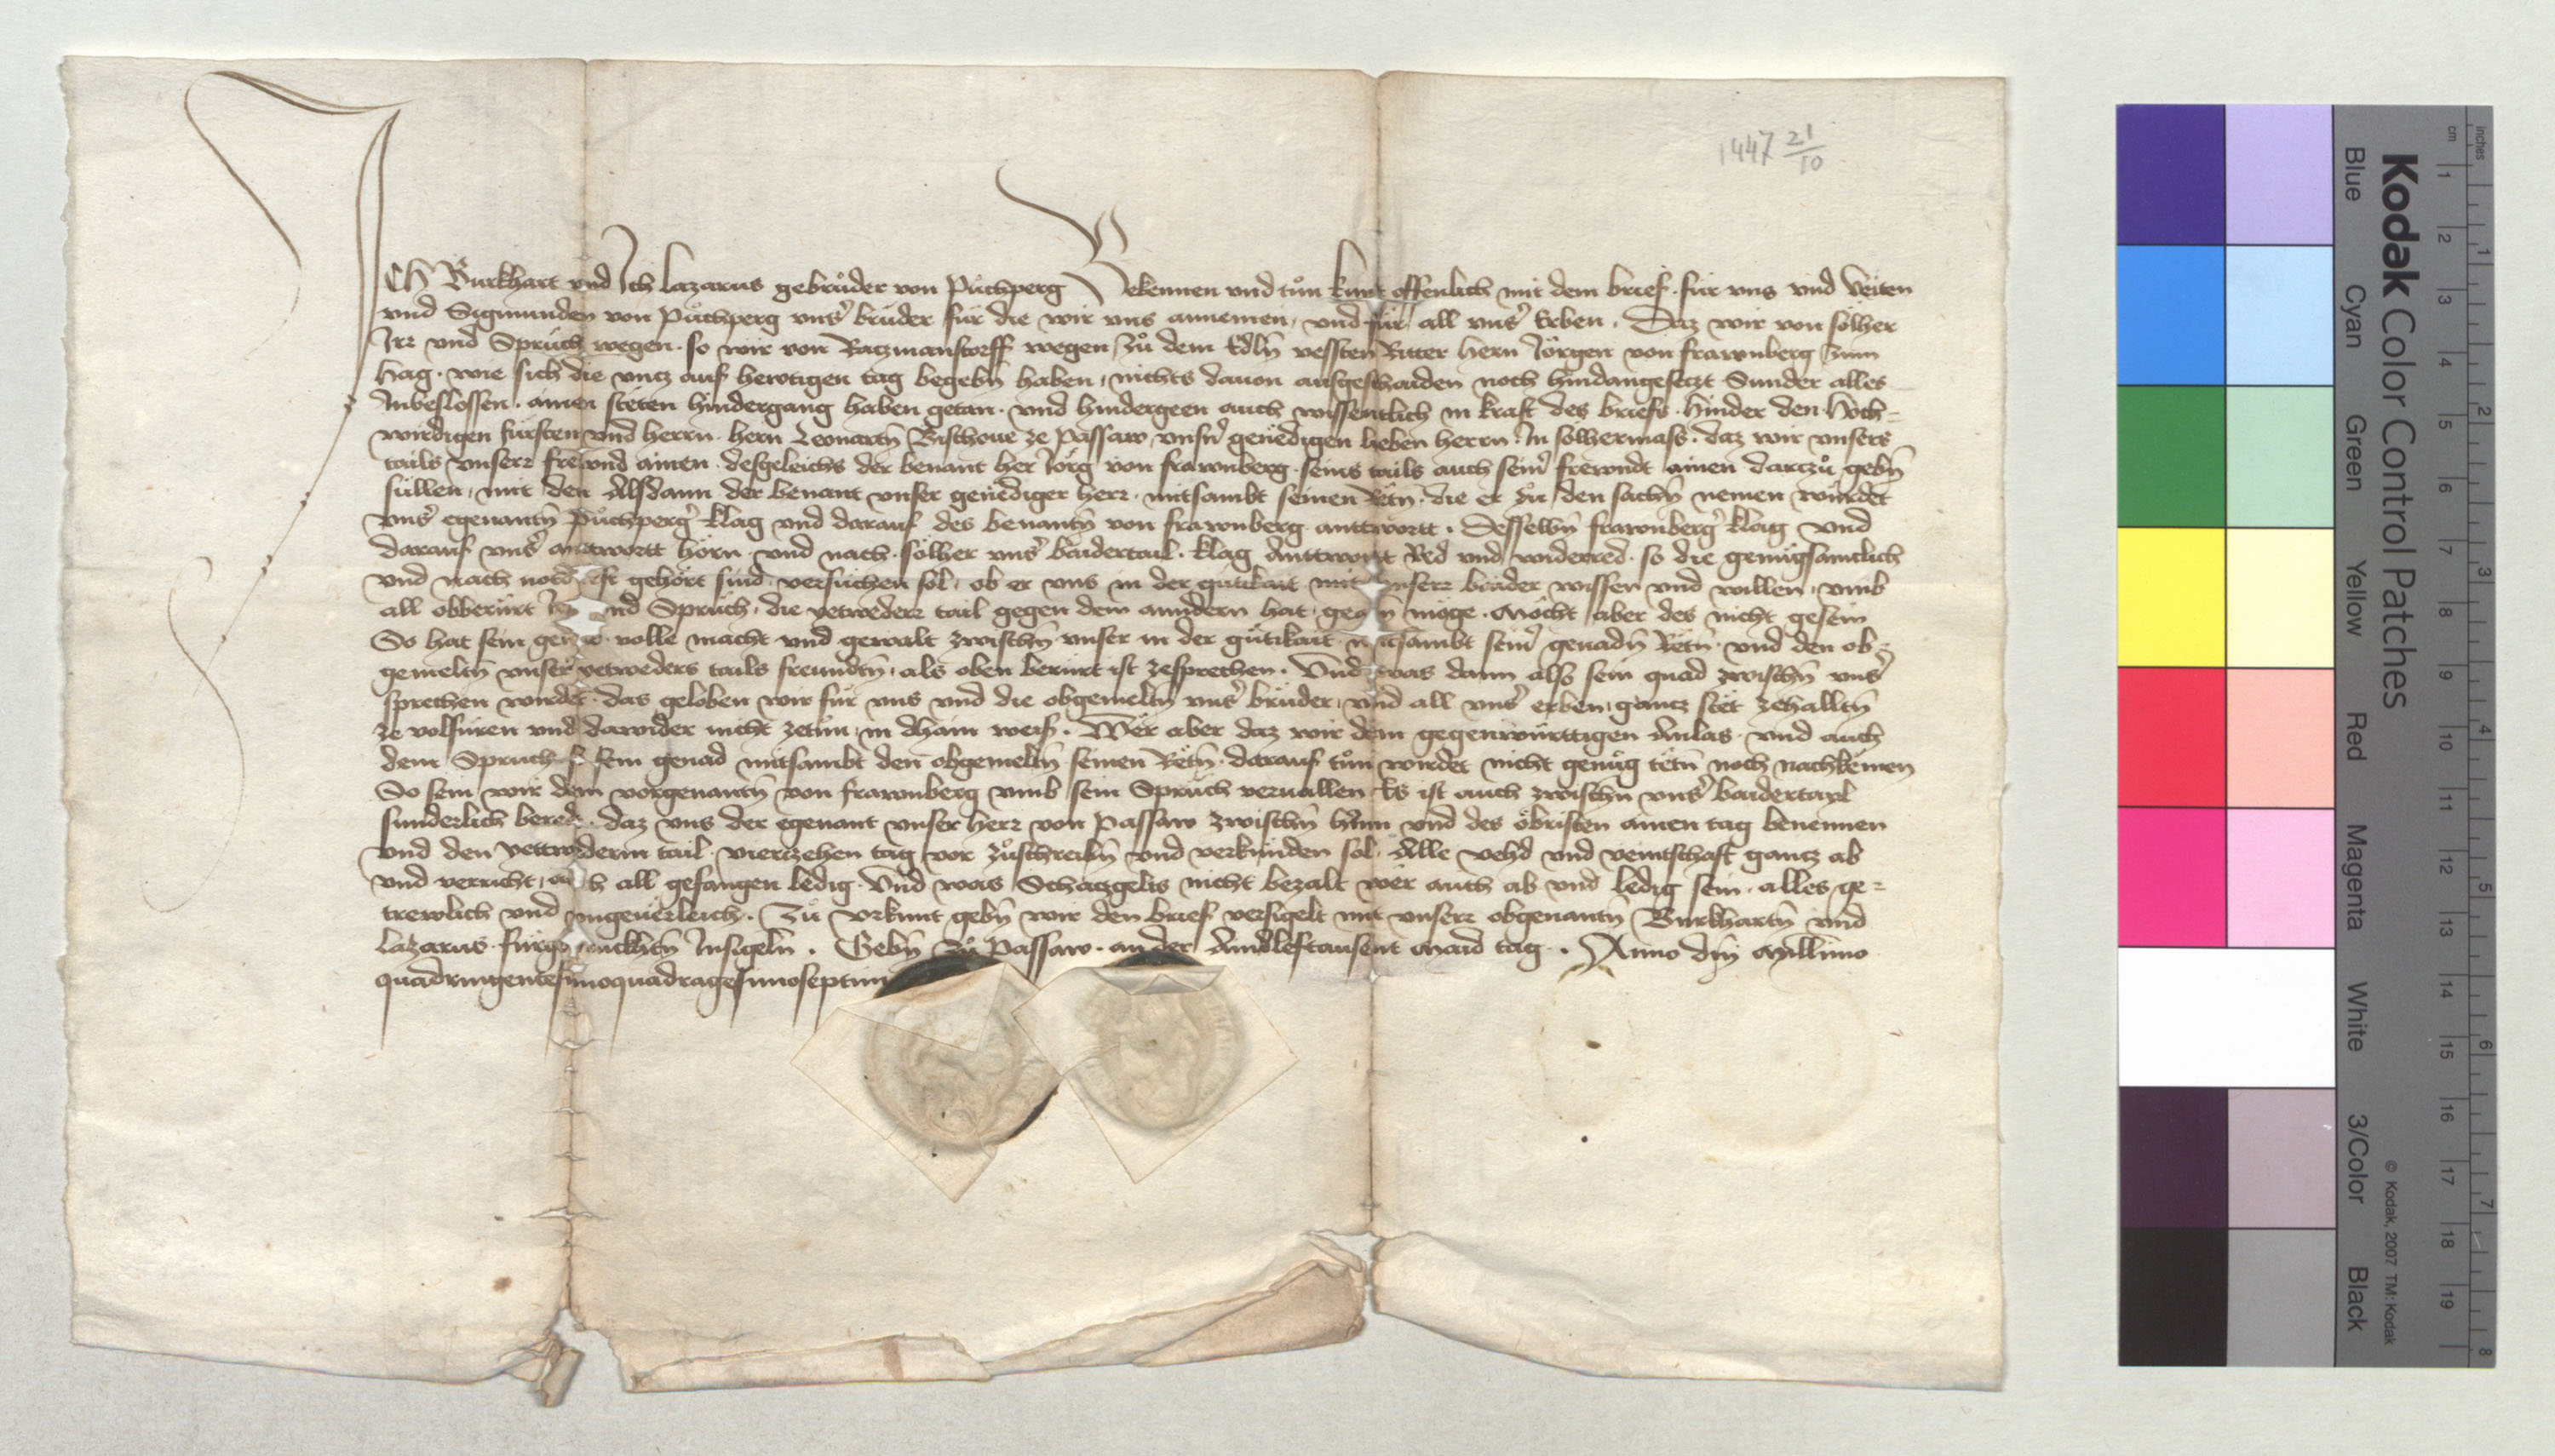 1447 21/10
ICH Burkhart vnd Ich lazarus gebruͦder von Puͦchperg Bekennen vnd tuͦn kunt offenlich mit dem brief fuͤr vns vnd Veiten
vnd Sigmunden von Puͦchperg vnser bruͤder fuͤr die wir vns annemen, vnd fuͤr all vnser Erben. Daz wir von soͤlher
Irr vnd Spruͤch wegen. so wir von Ratzmanstorff wegen zuͦ dem Edln̄ vessten Ritter hern Joͤrgen von frawnberg zum
Hag. wie sich die vntz auf hewtigen tag begebn̄ haben, nichts dauon ausgeschaiden noch hindangeseczt Sunder alles
Inbeslossen. ainen steten hindergang haben getan. vnd hindergeen auch wissentlich in kraft des briefs. hinder den Hoch-
wirdigen fuͤrsten vnd herrn. hern Leonartn̄ Bischoue ze Passaw, vnsn̄ genedigen lieben herrn. In solhermass. daz wir vnsers
tails vnserr frewnd ainen. desgeleichs der benant her Joͤrg von frawnberg. seins tails auch seiner frewndt ainen darczuͦ gebn̄
suͤllen, mit den Alsdann der benant vnser genediger herr. mitsambt seinen Retn̄. die er zu den sachn̄ nemen wuͤrdet
vnser egenantn̄ Puͦchperger klag vnd darauf des benantn̄ von frawnberg anttwortt. Desselbn̄ frawnberger klag vnd
darauf vnser anttwortt hoͤrn. vnd nach soͤlher vnser baidertail. klag Anttwort Red vnd widerred. so die genuͤgsamclich
vnd nach notd ft gehoͤrt sind, versuchen sol, ob er vns in der guͤtikait mit vnserr baider wissen vnd willen, vmb
all obberuͤrt Irr vnd Spruͤch, die yetwederr tail gegen dem anndern hat, gea n moͤge. Moͤcht aber des nicht gesein
So hat sein genad volle macht vnd gewalt zwischn̄ vnser in der guͤtikait mitsambt seiner genadn̄ Retn̄. vnd den ob-
gemeltn̄ vnser yetweders tails freundtn̄, als oben beruͤrt ist zesprechen. Vnd was dann also sein gnad zwischn̄ vnser
sprechen wirdet. das geloben wir fuͤr vns vnd die obgemeltn̄ vnser bruͤder, vnd all vnser erben, gancz stet zehalltn̄
ze volfuͤren vnd dawider nicht zetuͦn, in dhain weis. Wer aber daz wir dem gegenwuͤrttigen Anlas. vnd auch
dem Spruch so sein genad mitsambt den obgemeltn̄ seinen Retn̄. darauf tuͦn wirdet nicht genuͦg tetn̄ noch nachkemen
So sein wir dem vorgenantn̄ von frawnberg vmb sein Spruͤch veruallen Es ist auch zwischn̄ vnser baidertayl
sunderlich beredt. daz vns der egenant vnser herr von Passaw zwischn̄ hynn vnd des oͤbristen ainen tag benennen
vnd den yettwederm tail. vierczehen tag vor zuͦschreibn̄ vnd verkuͤnden sol. Alle vehd vnd veintschaft gancz ab
vnd verricht, auch all gefangen ledig. Vnd was Schaczgelts nicht bezalt wer auch ab vnd ledig sein. alles ge-
trewlich vnd vngeuerleich. Zuͦ vrkunt gebn̄ wir den brief versigelt mit vnserr obgenantn̄ Burkhartn̄ vnd
lazarus. fuͤrgedrucktn̄ Insigeln. Gebn̄ zuͦ Passaw. an der Aindleftausent Maid tag. Anno dn̄i Millimo
quadringentesimoquadragesimoseptimo
Kodak Color Control Patches
Blue Cyan Green Yellow Red Magenta White 3/Color Black
© Kodak, 2007 TM: Kodak
inches 1 2 3 4 5 6 7 8
cm 1 2 3 4 5 6 7 8 9 10 11 12 13 14 15 16 17 18 19